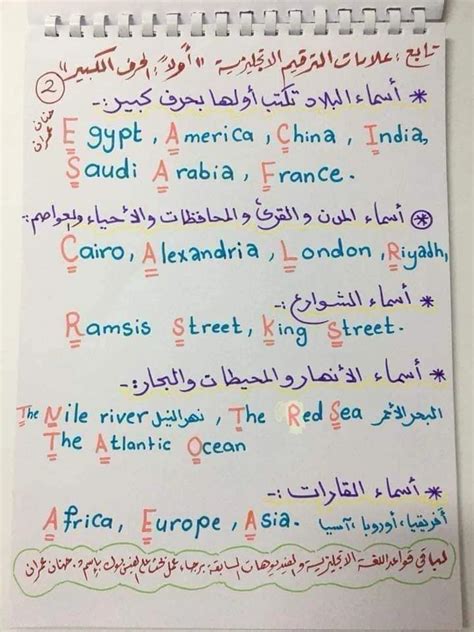 تابع: علامات الترقيم الانجليزية "أولاً: الحرف الكبير"
2
حنان عمران
* أسماء البلاد تكتب أولها بحرف كبير:-
Egypt, America, China, India,
Saudi Arabia, France.
* أسماء المدن والقرى والمحافظات والأحياء والعواصم:
Cairo, Alexandria, London, Riyadh,
* أسماء الشوارع:-
Ramsis Street, King Street.
* أسماء الأنهار والمحيطات والبحار:-
The Nile river نهر النيل, The Red Sea البحر الأحمر
The Atlantic Ocean
* أسماء القارات:-
Africa, Europe, Asia. أفريقيا، أوروبا، آسيا
لباقي قواعد اللغة الانجليزية والفيديوهات السابقة برجاء عمل بحث على الفيس بوك بإسم د. حنان عمران